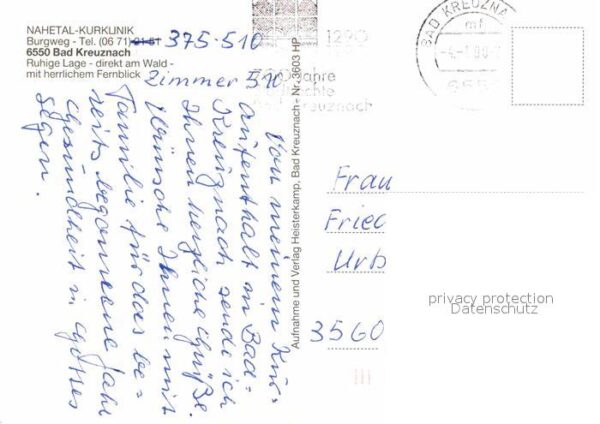 NAHETAL-KURKLINIK
Burgweg - Tel. (06 71) 21 51 375-510
6550 Bad Kreuznach
Ruhige Lage - direkt am Wald -
mit herrlichem Fernblick
Zimmer 510
Von meinem Kur-
aufenthalt in Bad-
Kreuznach sende ich
Ihnen herzliche Grüße.
Wünsche Ihnen mit
Familie für das be-
reits begonnene Jahr
Gesundheit in Gottes
Segen.
Aufnahme und Verlag Heisterkamp, Bad Kreuznach - Nr. 3603 HP
1290
Jahre
Bad Kreuznach
BAD KREUZNA
mf
655
Frau
Fried
Urb
3560
privacy protection
Datenschutz